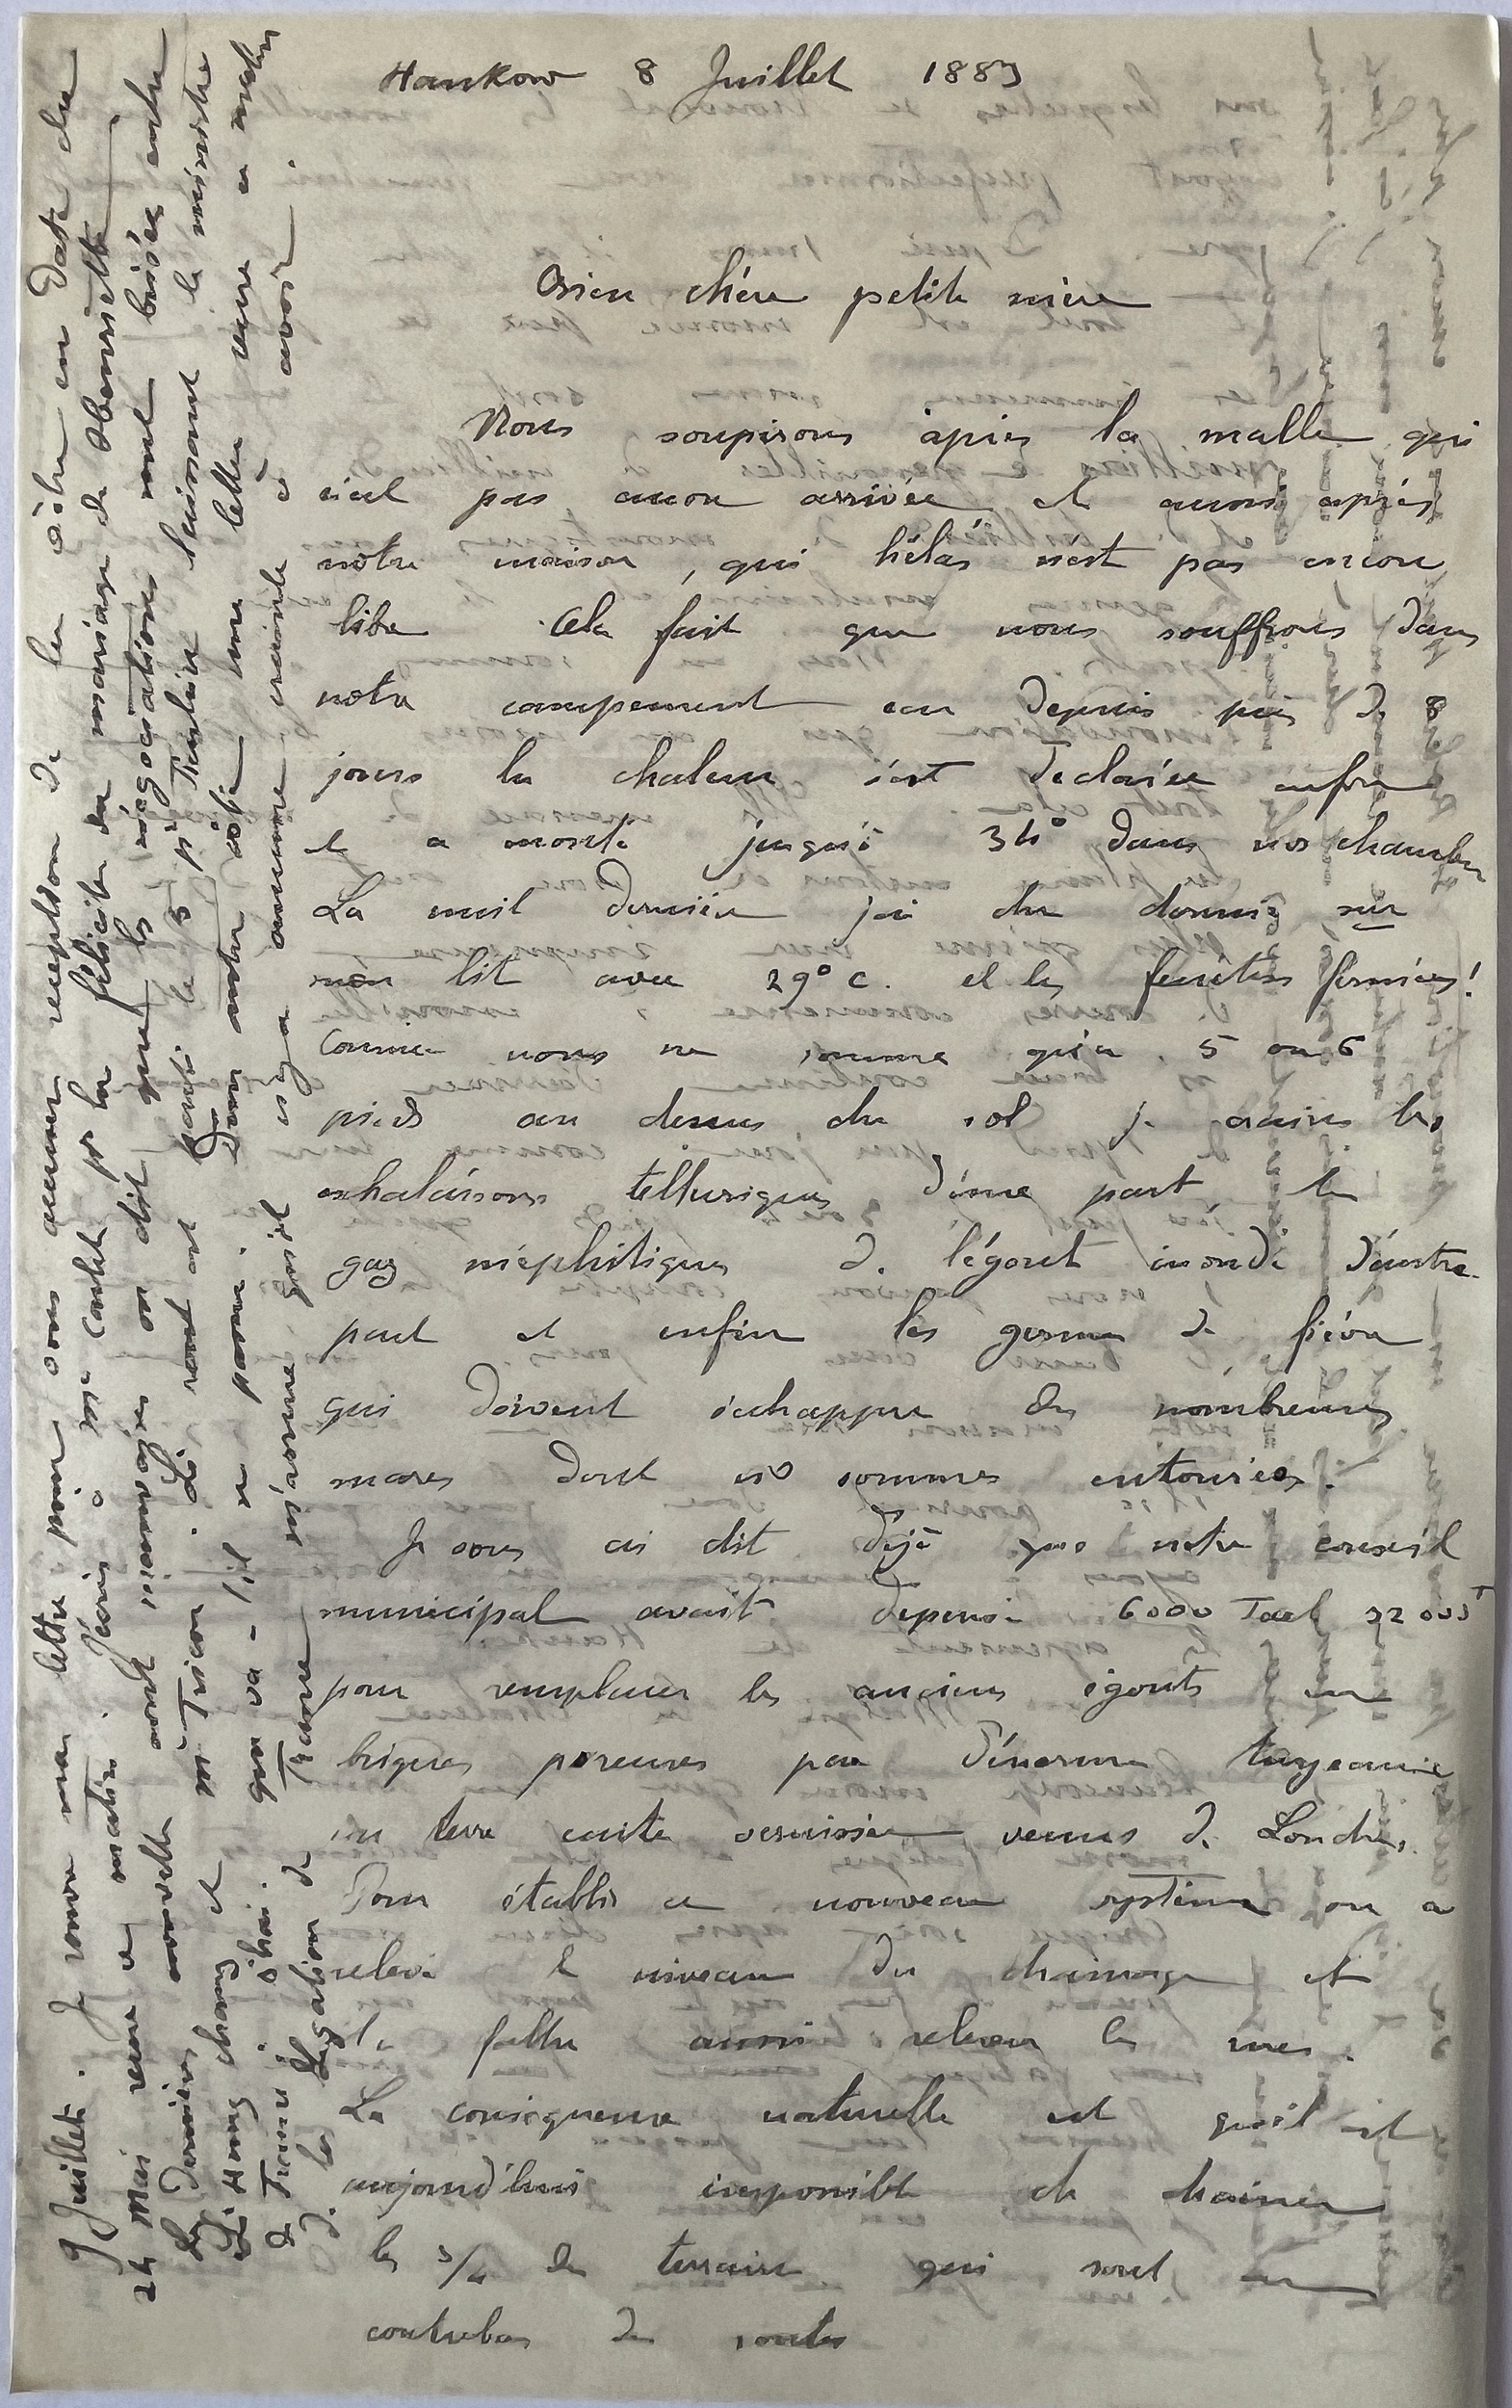 Hankow 8 Juillet 1883
Bien chère petite mère
Nous soupirons après la malle qui
n'est pas encore arrivée et aussi après
notre maison, qui hélas n'est pas encore
libre. Cela fait que nous souffrons dans
notre campement car depuis près de 8
jours la chaleur s'est declarée enfin
et a monté jusqu'à 34° dans nos chambres
La nuit dernière j'ai du dormir sur
mon lit avec 29° c. et les fenêtres fermées!
Comme nous ne sommes qu'à 5 ou 6
pieds au dessus du sol je crains les
exhalaisons telluriques d'une part, les
gaz méphitiques de l'égout inondé d'autre
part et enfin les germes de fièvre
qui doivent s'echapper des nombreuses
mares dont ns sommes entourés.
Je vous ai dit déjà que notre conseil
municipal avait depensé 6000 Tael
pour remplacer les anciens égouts en
briques poreuses par d'énormes tuyeaux
en terre cuite vernissée venus de Londres.
Pour établir ce nouveau système on a
relevé le niveau du drainage et
il a fallu aussi relever les rues.
La conséquence naturelle est qu'il est
aujourd'hui impossible de drainer
les 3/4 des terrains qui sont en
contrebas des routes
9 Juillet. Je rouvre ma lettre pour vous accuser reception de la vôtre en date du
24 Mai recue ce matin. J'écris à Me Coutet pr la féliciter du mariage de Henriette
Les dernières nouvelles sont mauvaises on dit que les négociations sont brisées entre
Li Hong Chang et Mr Tricou. Li serait parti le 5 pr Tientsin laissant le ministre
de France à Shai. que va-t-il se passer. D'un autre côté une lettre recue ce matin
de la Légation de France m'donne qu'il n'y a aucune crainte à avoir.